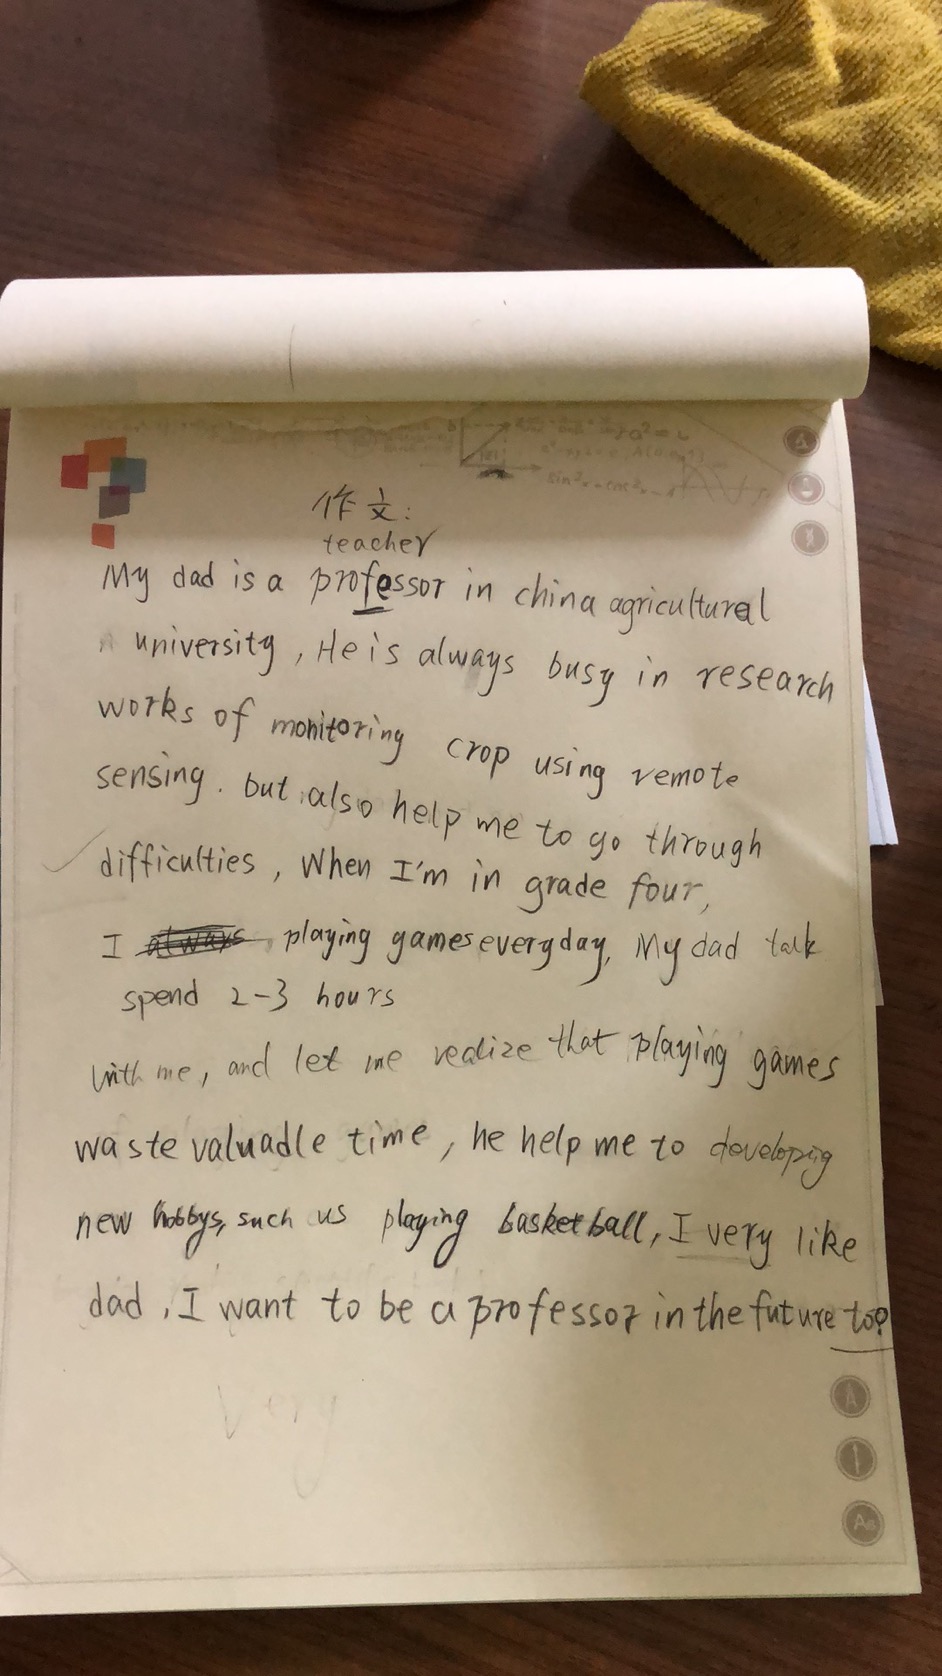 作文:
teacher
My dad is a professor in china agricultural
university, He is always busy in research
works of monitoring crop using remote
sensing. but also help me to go through
difficulties, When I'm in grade four,
I always playing games everyday, My dad talk
spend 2-3 hours
with me, and let me realize that playing games
waste valuadle time, he help me to developing
new hobbys, such us playing basketball, I very like
dad, I want to be a professor in the future to?
Very